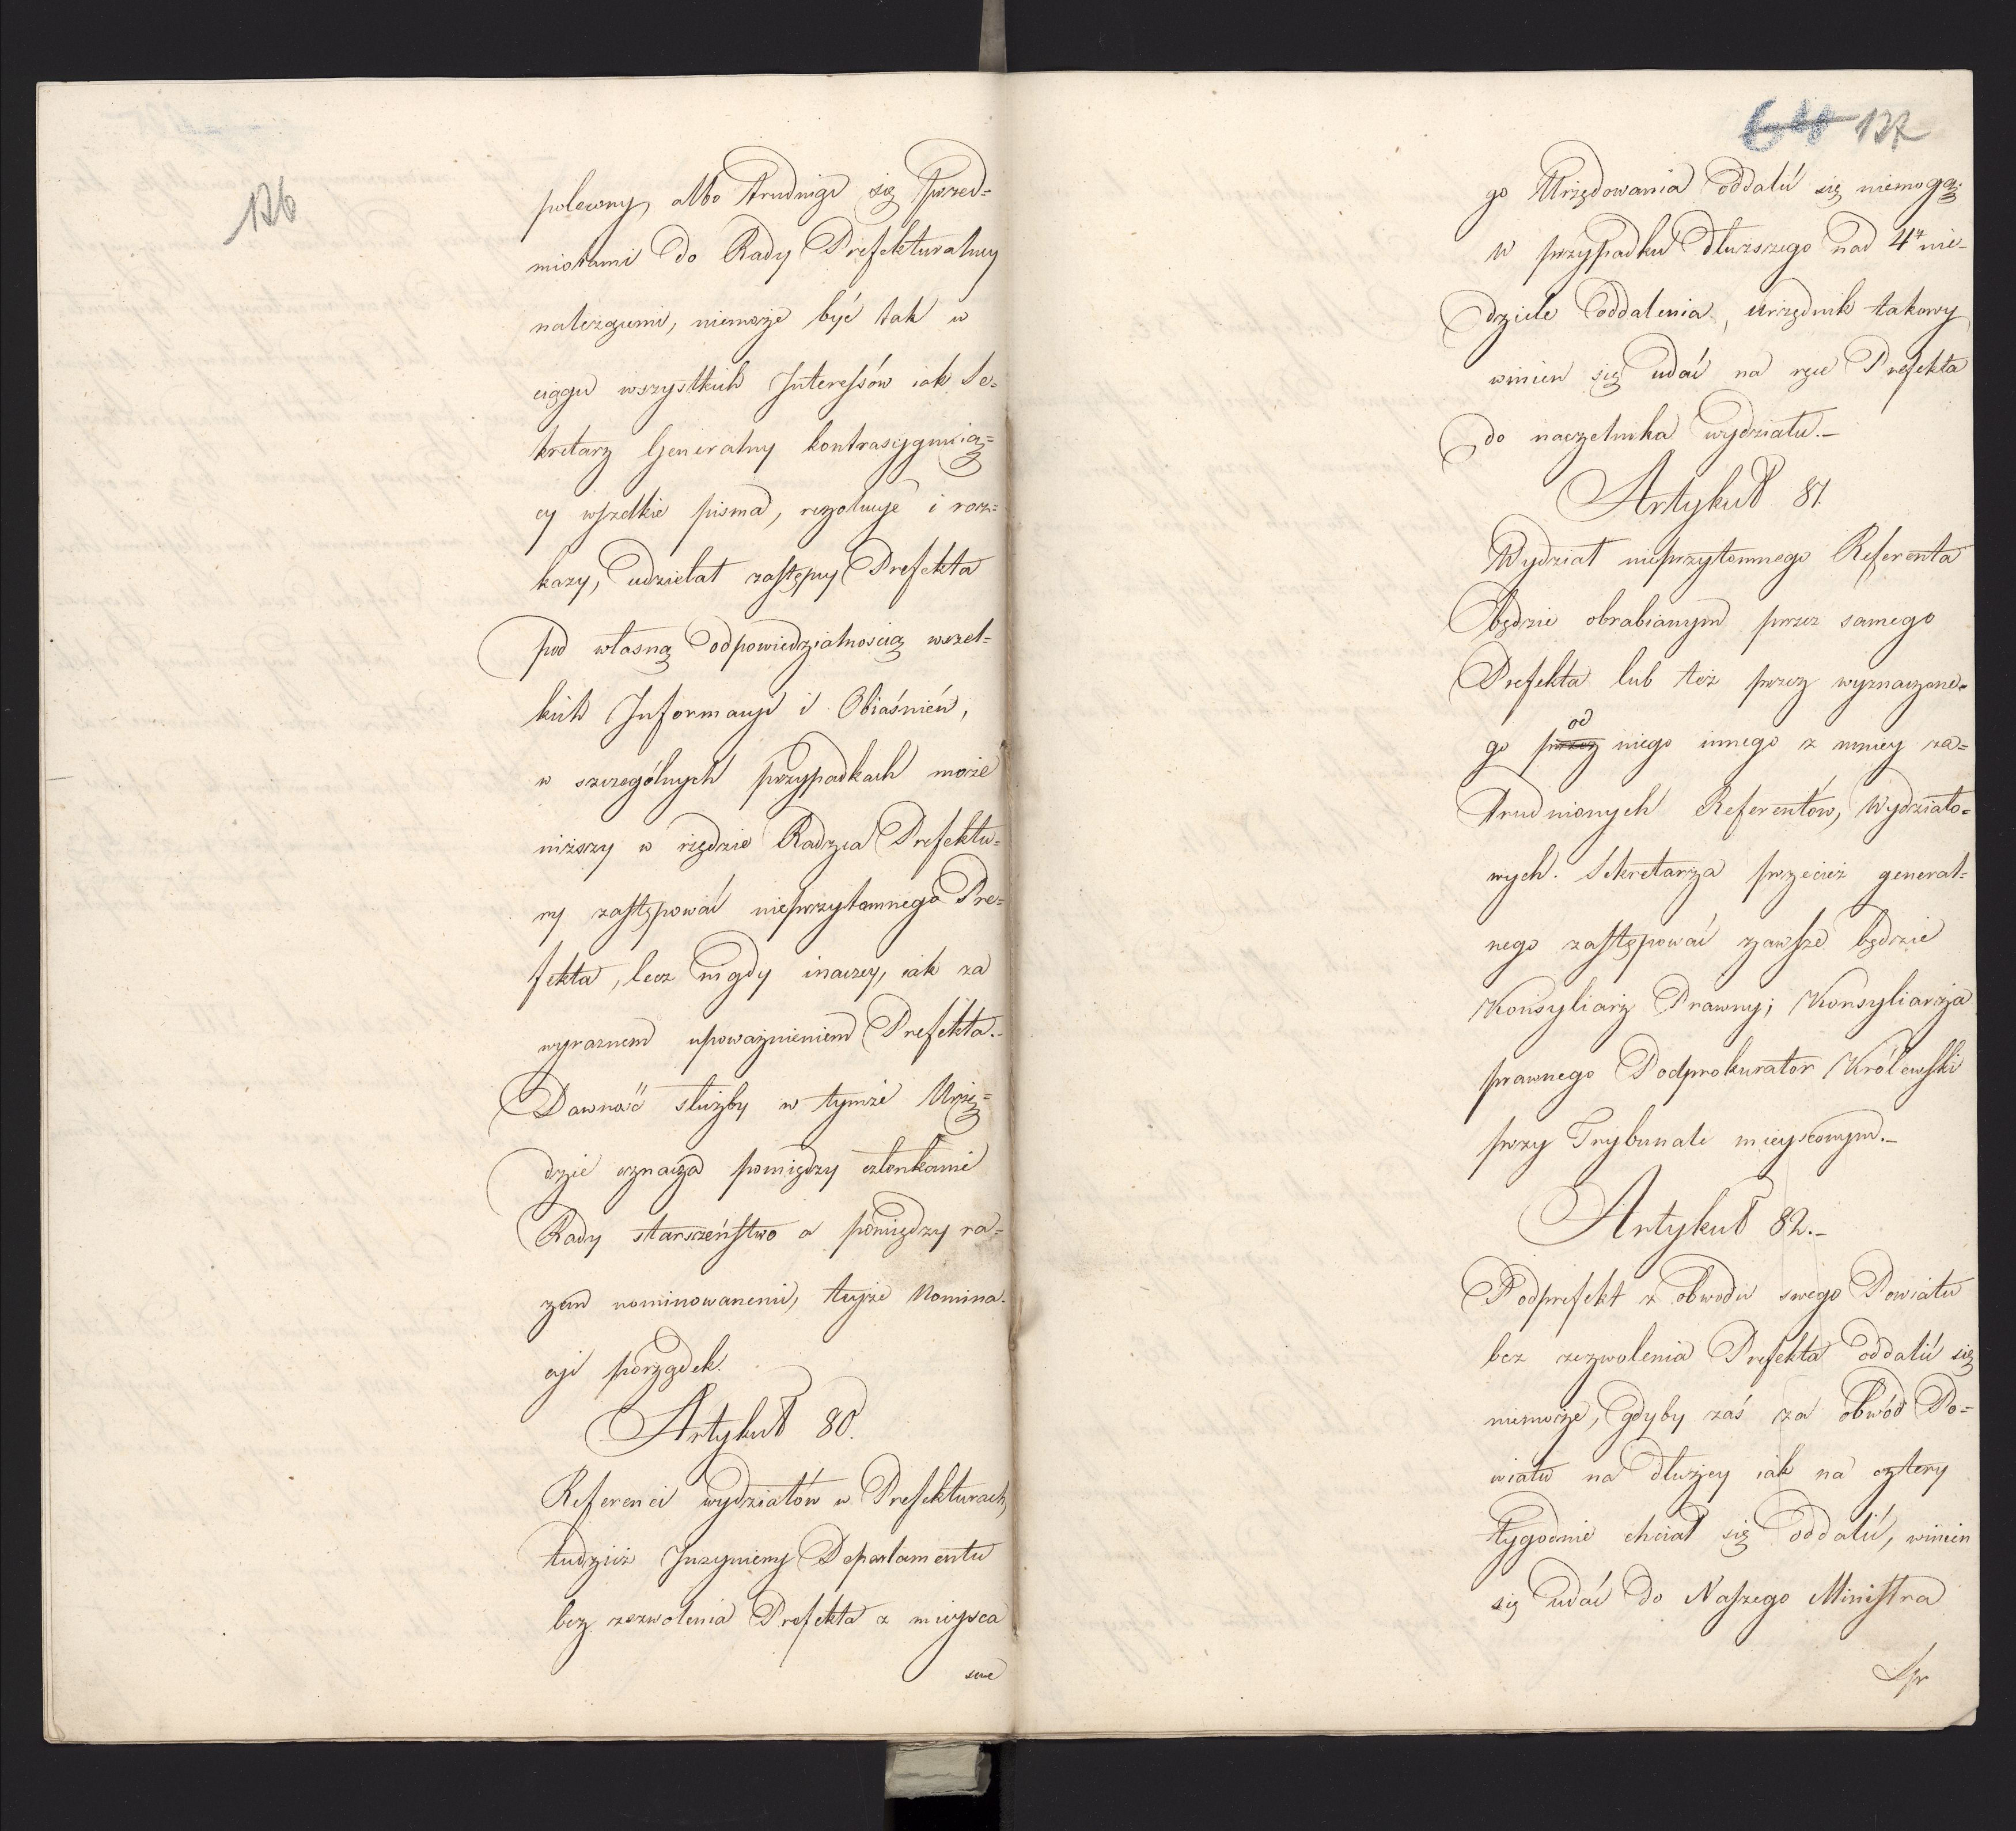 126
polewny, albo trudniąc się przed=
miotami do Rady Prefekturalney
należącemi, niemoże być tak w
ciągu wszystkich Interessów iak Se=
kretarz Generalny kontrasygnuią=
cy wszelkie pisma, rezolucye i roz=
kazy, udzielał zastępcy Prefekta
pod własną odpowiedzialnością wszel=
kich Informacyi i Obiaśnień,
w szczególnych przypadkach może
niższy w rzędzie Radzca Prefektu=
ry zastępować nieprzytomnego Pre=
fekta, lecz nigdy inaczey, iak za
wyraznem upoważnieniem Prefekta.-
Dawność służby w tymże Urzę=
dzie oznacza pomiędzy członkami
Rady starszeństwo a pomiędzy ra=
zem nominowanemi, teyże Nomina=
cyi porządek.
Artykuł 80.
Referenci wydziałów w Prefekturach,
tudzież Inzyniery Departamentu
bez zezwolenia Prefekta z mieysca
swe
137
go Urzędowania oddalić się niemogą;
w przypadku dłuższego nad 4ry nie=
dziele oddalenia, urzędnik takowy
winien się udać na ręce Prefekta
do naczelnika wydziału.-
Artykuł 81.
Wydział nieprzytomnego Referenta
będzie obrabianym przez samego
Prefekta lub też przez wyznaczone=
od
go przez niego innego z mniey za=
trudnionych Referentów, Wydziało=
wych. Sekretarza przecież general=
nego zastępować zawsze będzie
Konsyliarz Prawny; Konsyliarza
prawnego Podprokurator Królewski
przy Trybunale mieyscowym.-
Artykuł 82.-
Podprefekt z obwodu swego Powiatu
bez zezwolenia Prefekta oddalić się
niemoże, gdyby zaś za obwód Po=
wiatu na dłużey iak na cztery
tygodnie chciał się oddalić, winien
się udać do Naszego Ministra
Spr